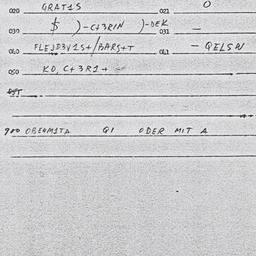 020 GRATIS 021 O
030 $ )-C+3RIN )-DEK 031 —
040 FLEJD3V1S+/BARS+T 041 — QELSN
050 KO, C+3R1+
900 OBERMITA QI ODER MIT A